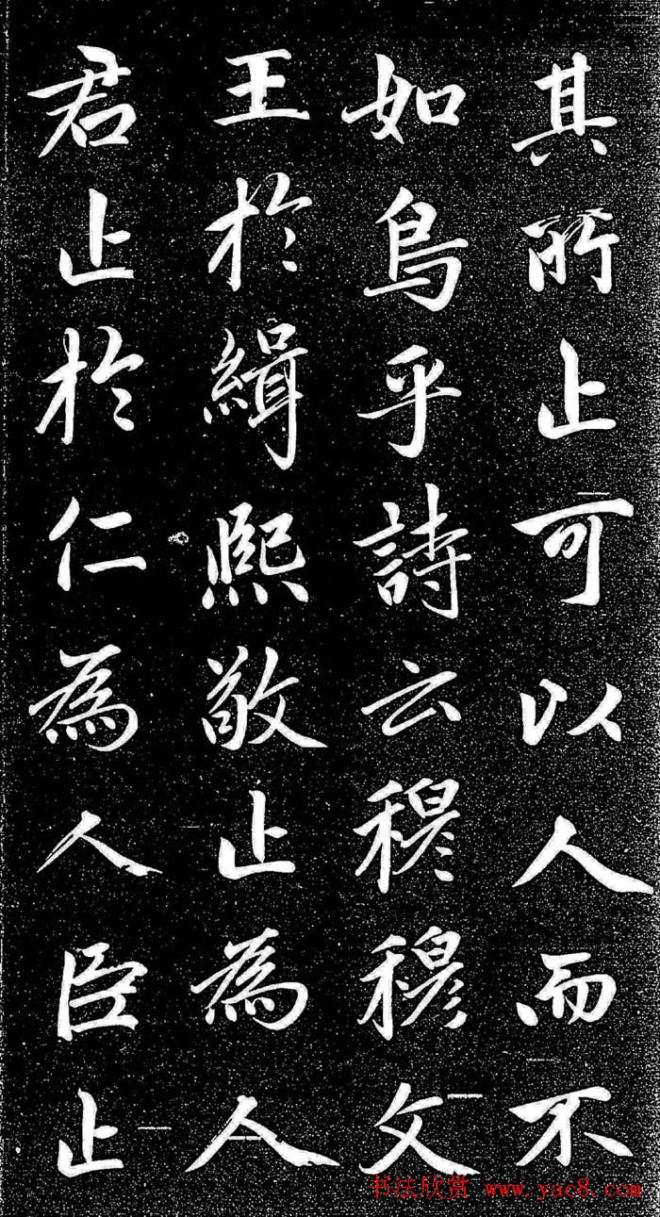 其所止可以人而不
如鳥乎詩云穆穆文
王於緝熙敬止為人
君止於仁為人臣止
书法欣赏 www.yac8.com